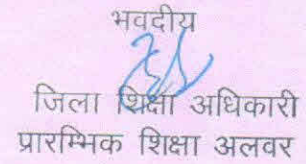 भवदीय
जिला शिक्षा अधिकारी
प्रारम्भिक शिक्षा अलवर